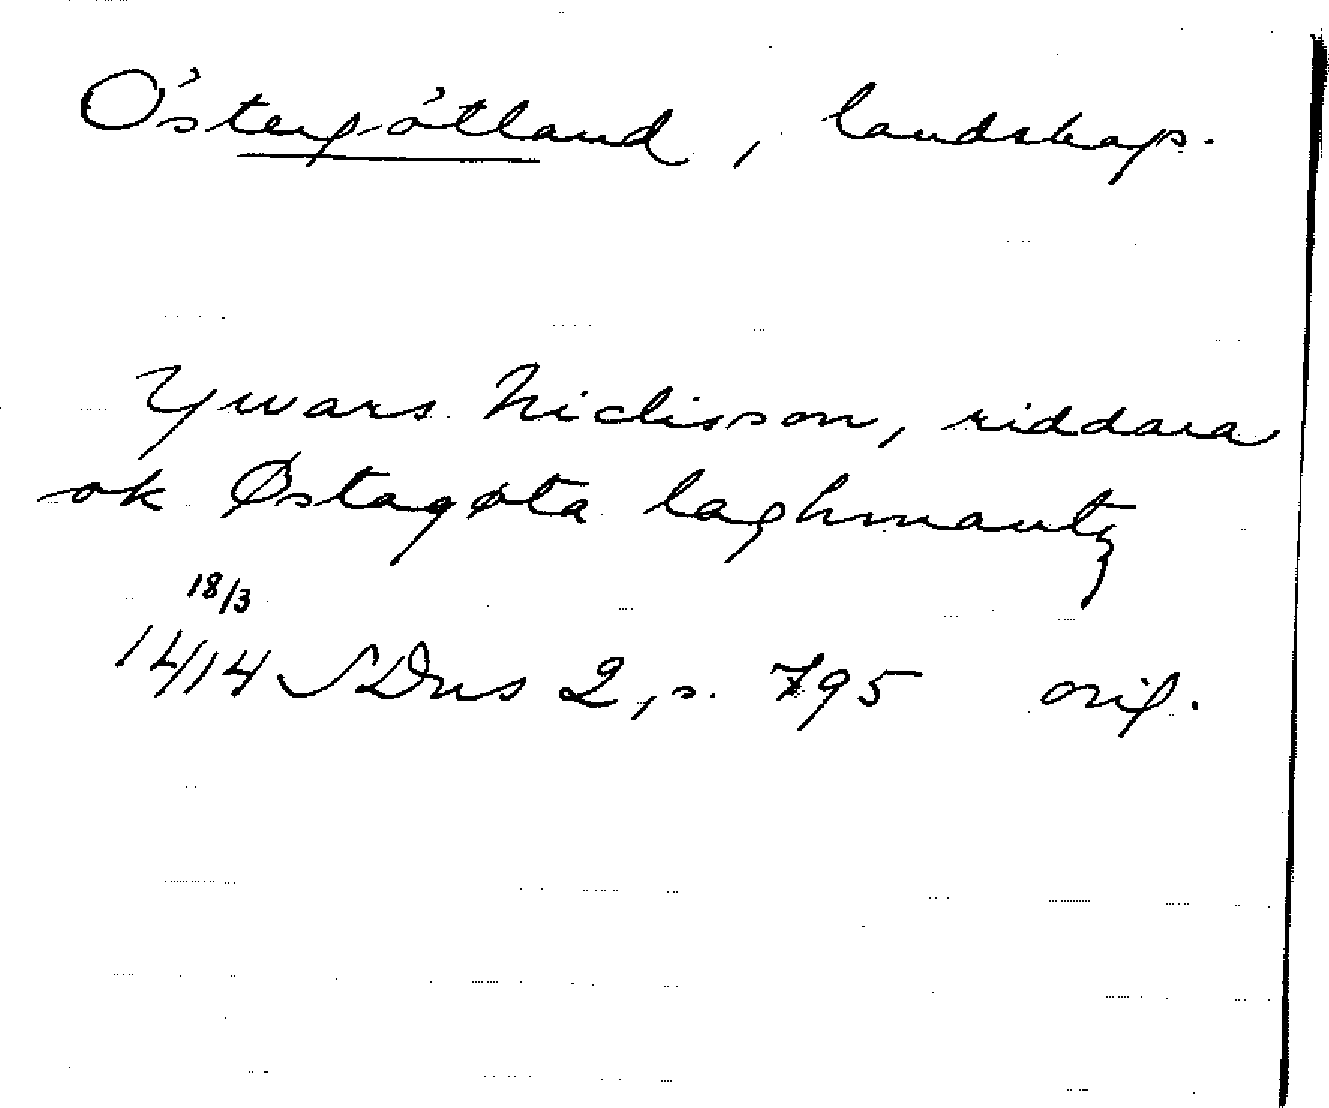 Östergötland, landskap.
Ywars Niclisson, riddara
ok Østagøta laghmantz
18/3
1414 SDns 2, s. 795 orig.